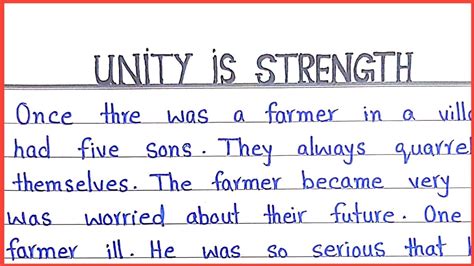 UNITY IS STRENGTH
Once thre was a farmer in a vill
had five sons. They always quarre
themselves. The farmer became very
was worried about their future. One
farmer ill. He was so serious that